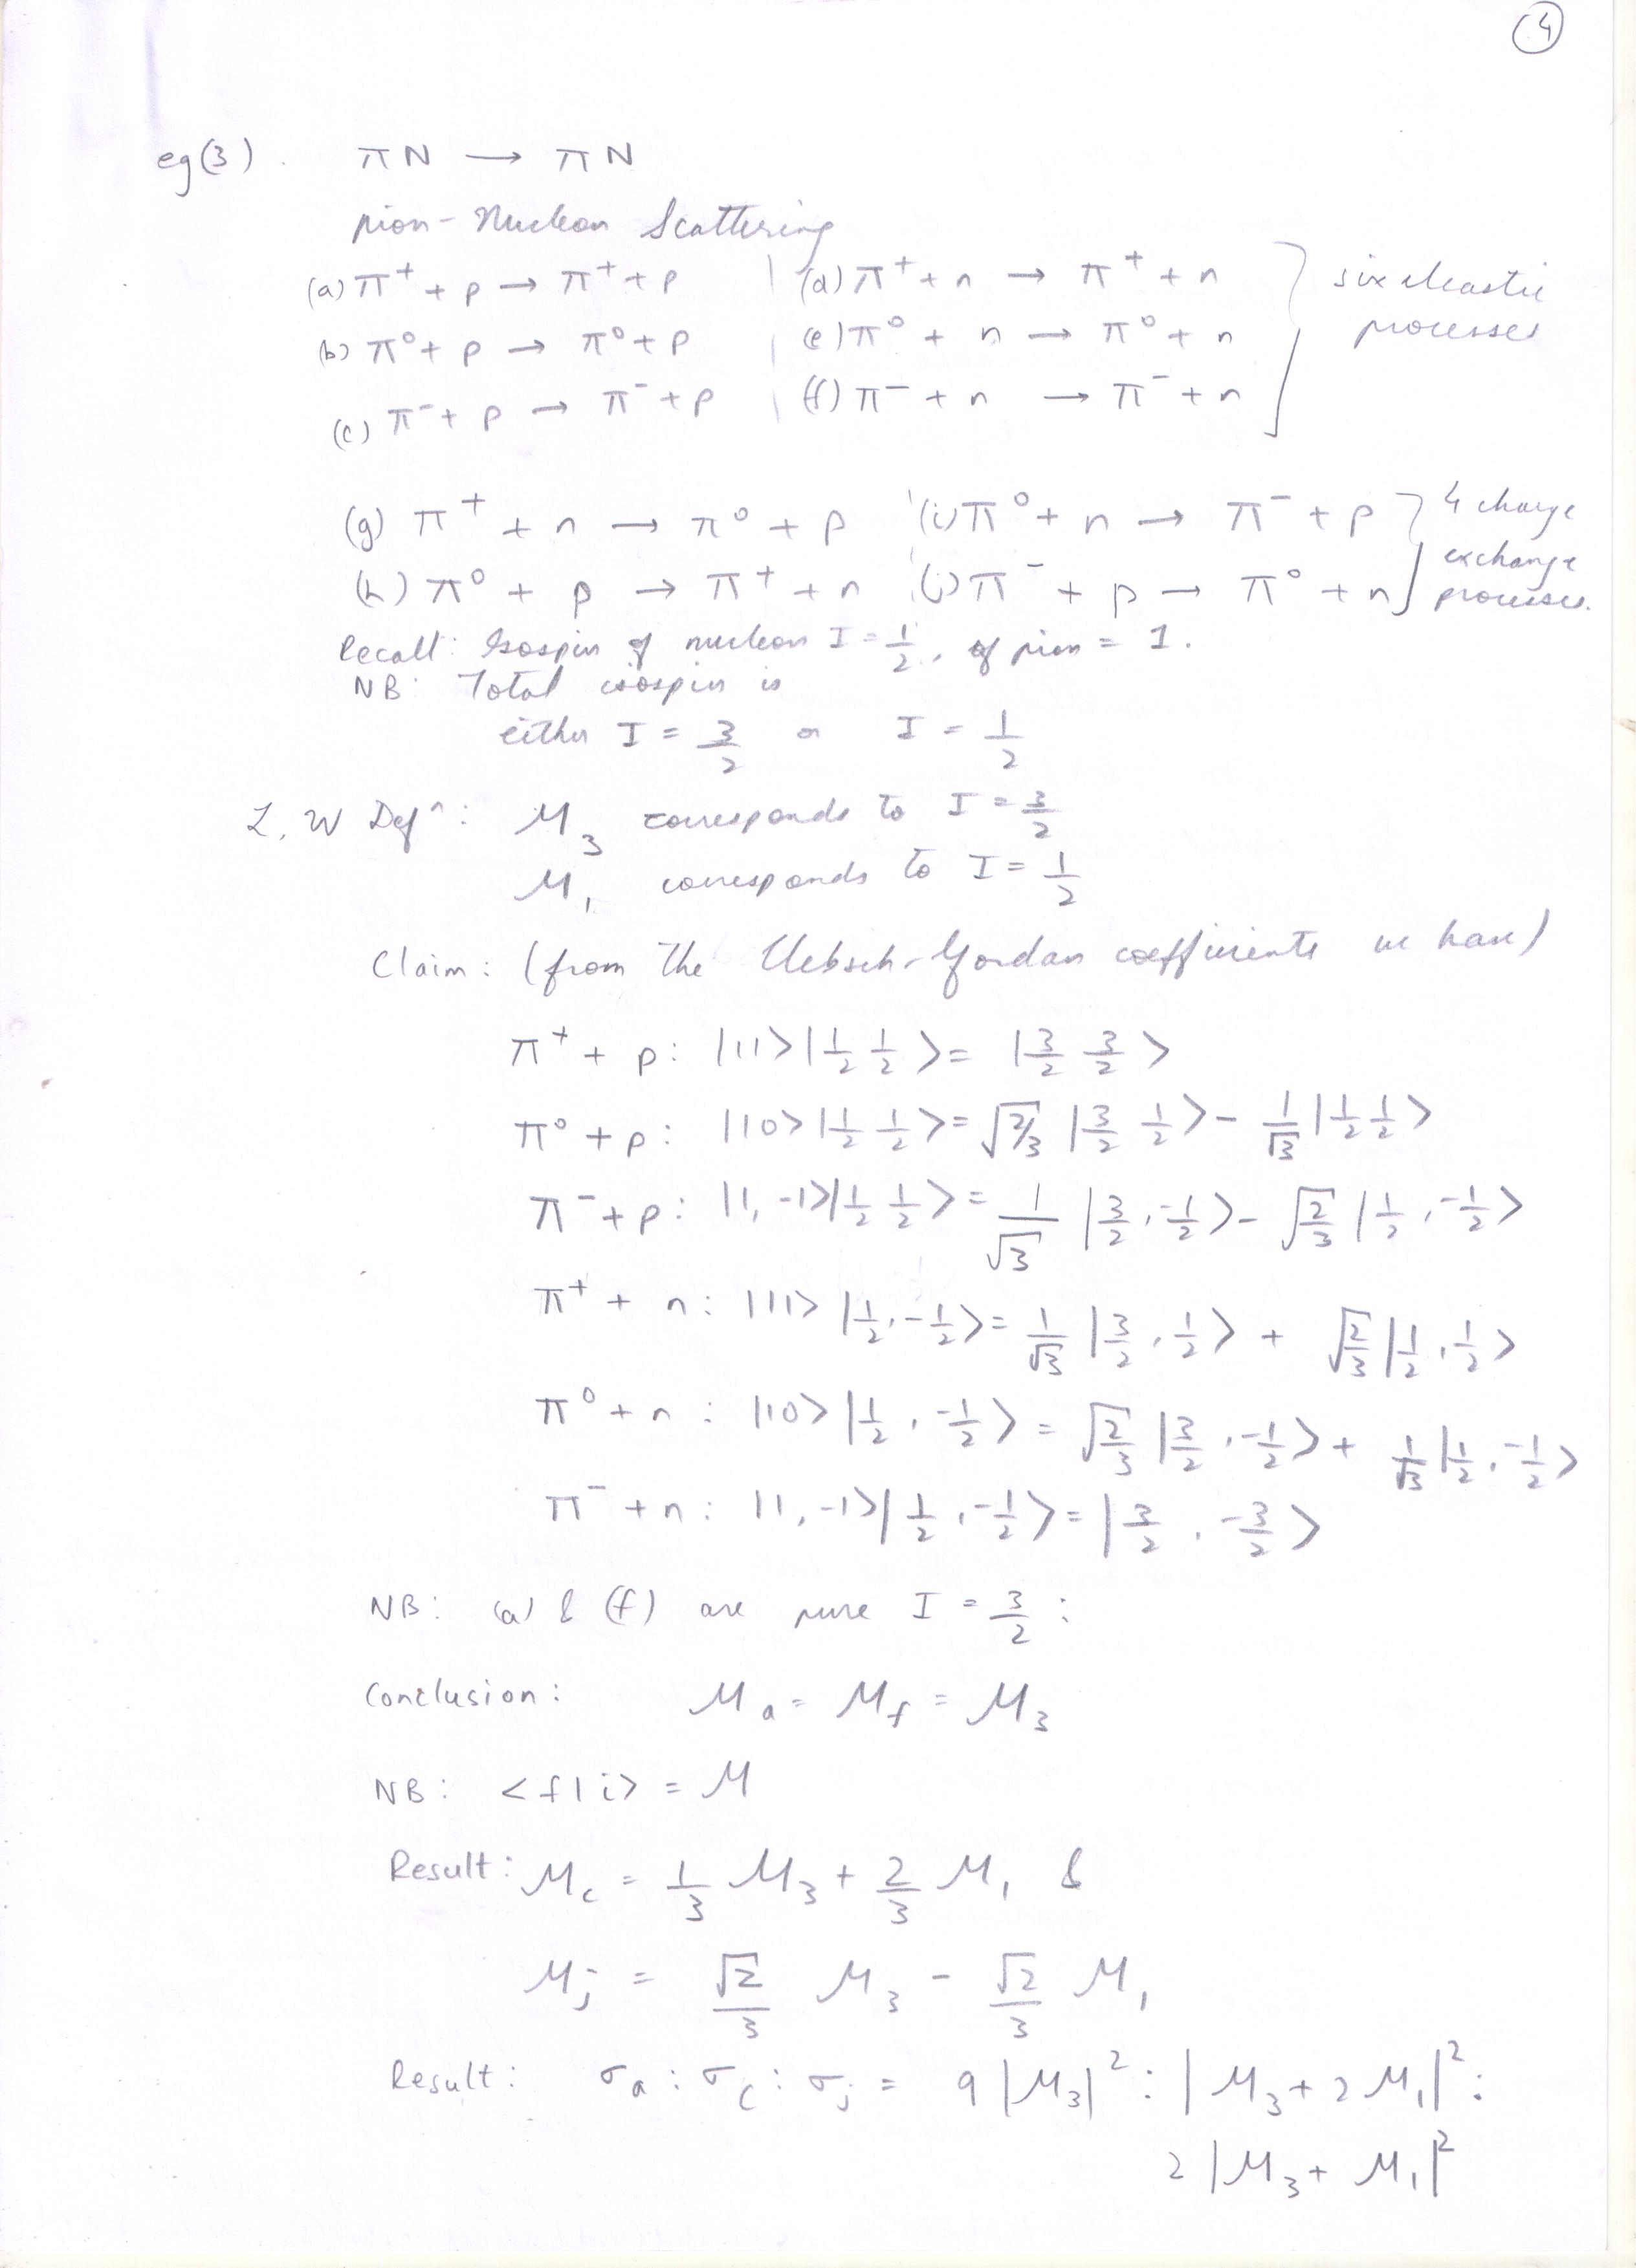 (4)
eg(3). πN → πN
pion-Nucleon Scattering
(a) π⁺ + p → π⁺ + p (d) π⁺ + n → π⁺ + n six elastic
(b) π⁰ + p → π⁰ + p (e) π⁰ + n → π⁰ + n processes
(c) π⁻ + p → π⁻ + p (f) π⁻ + n → π⁻ + n
(g) π⁺ + n → π⁰ + p (i) π⁰ + n → π⁻ + p 4 charge
exchange
(h) π⁰ + p → π⁺ + n (j) π⁻ + p → π⁰ + n processes.
Recall: Isospin of nucleon I = 1/2, of pion = 1.
NB: Total isospin is
either I = 3/2 or I = 1/2
L, W Defⁿ: M₃ corresponds to I = 3/2
M₁ corresponds to I = 1/2
Claim: (from the Clebsch-Gordan coefficients we have)
π⁺ + p: |11>|1/2 1/2> = |3/2 3/2>
π⁰ + p: |10>|1/2 1/2> = √2/3 |3/2 1/2> - 1/√3 |1/2 1/2>
π⁻ + p: |1, -1>|1/2 1/2> = 1/√3 |3/2, -1/2> - √2/3 |1/2, -1/2>
π⁺ + n: |11>|1/2, -1/2> = 1/√3 |3/2, 1/2> + √2/3 |1/2, 1/2>
π⁰ + n: |10>|1/2, -1/2> = √2/3 |3/2, -1/2> + 1/√3 |1/2, -1/2>
π⁻ + n: |1, -1>|1/2, -1/2> = |3/2, -3/2>
NB: (a) & (f) are pure I = 3/2:
Conclusion: Mₐ = M_f = M₃
NB: <f|i> = M
Result: M_c = 1/3 M₃ + 2/3 M₁ &
M_j = √2/3 M₃ - √2/3 M₁
Result: σₐ : σ_c : σ_j = 9|M₃|² : |M₃ + 2M₁|² :
2|M₃ + M₁|²